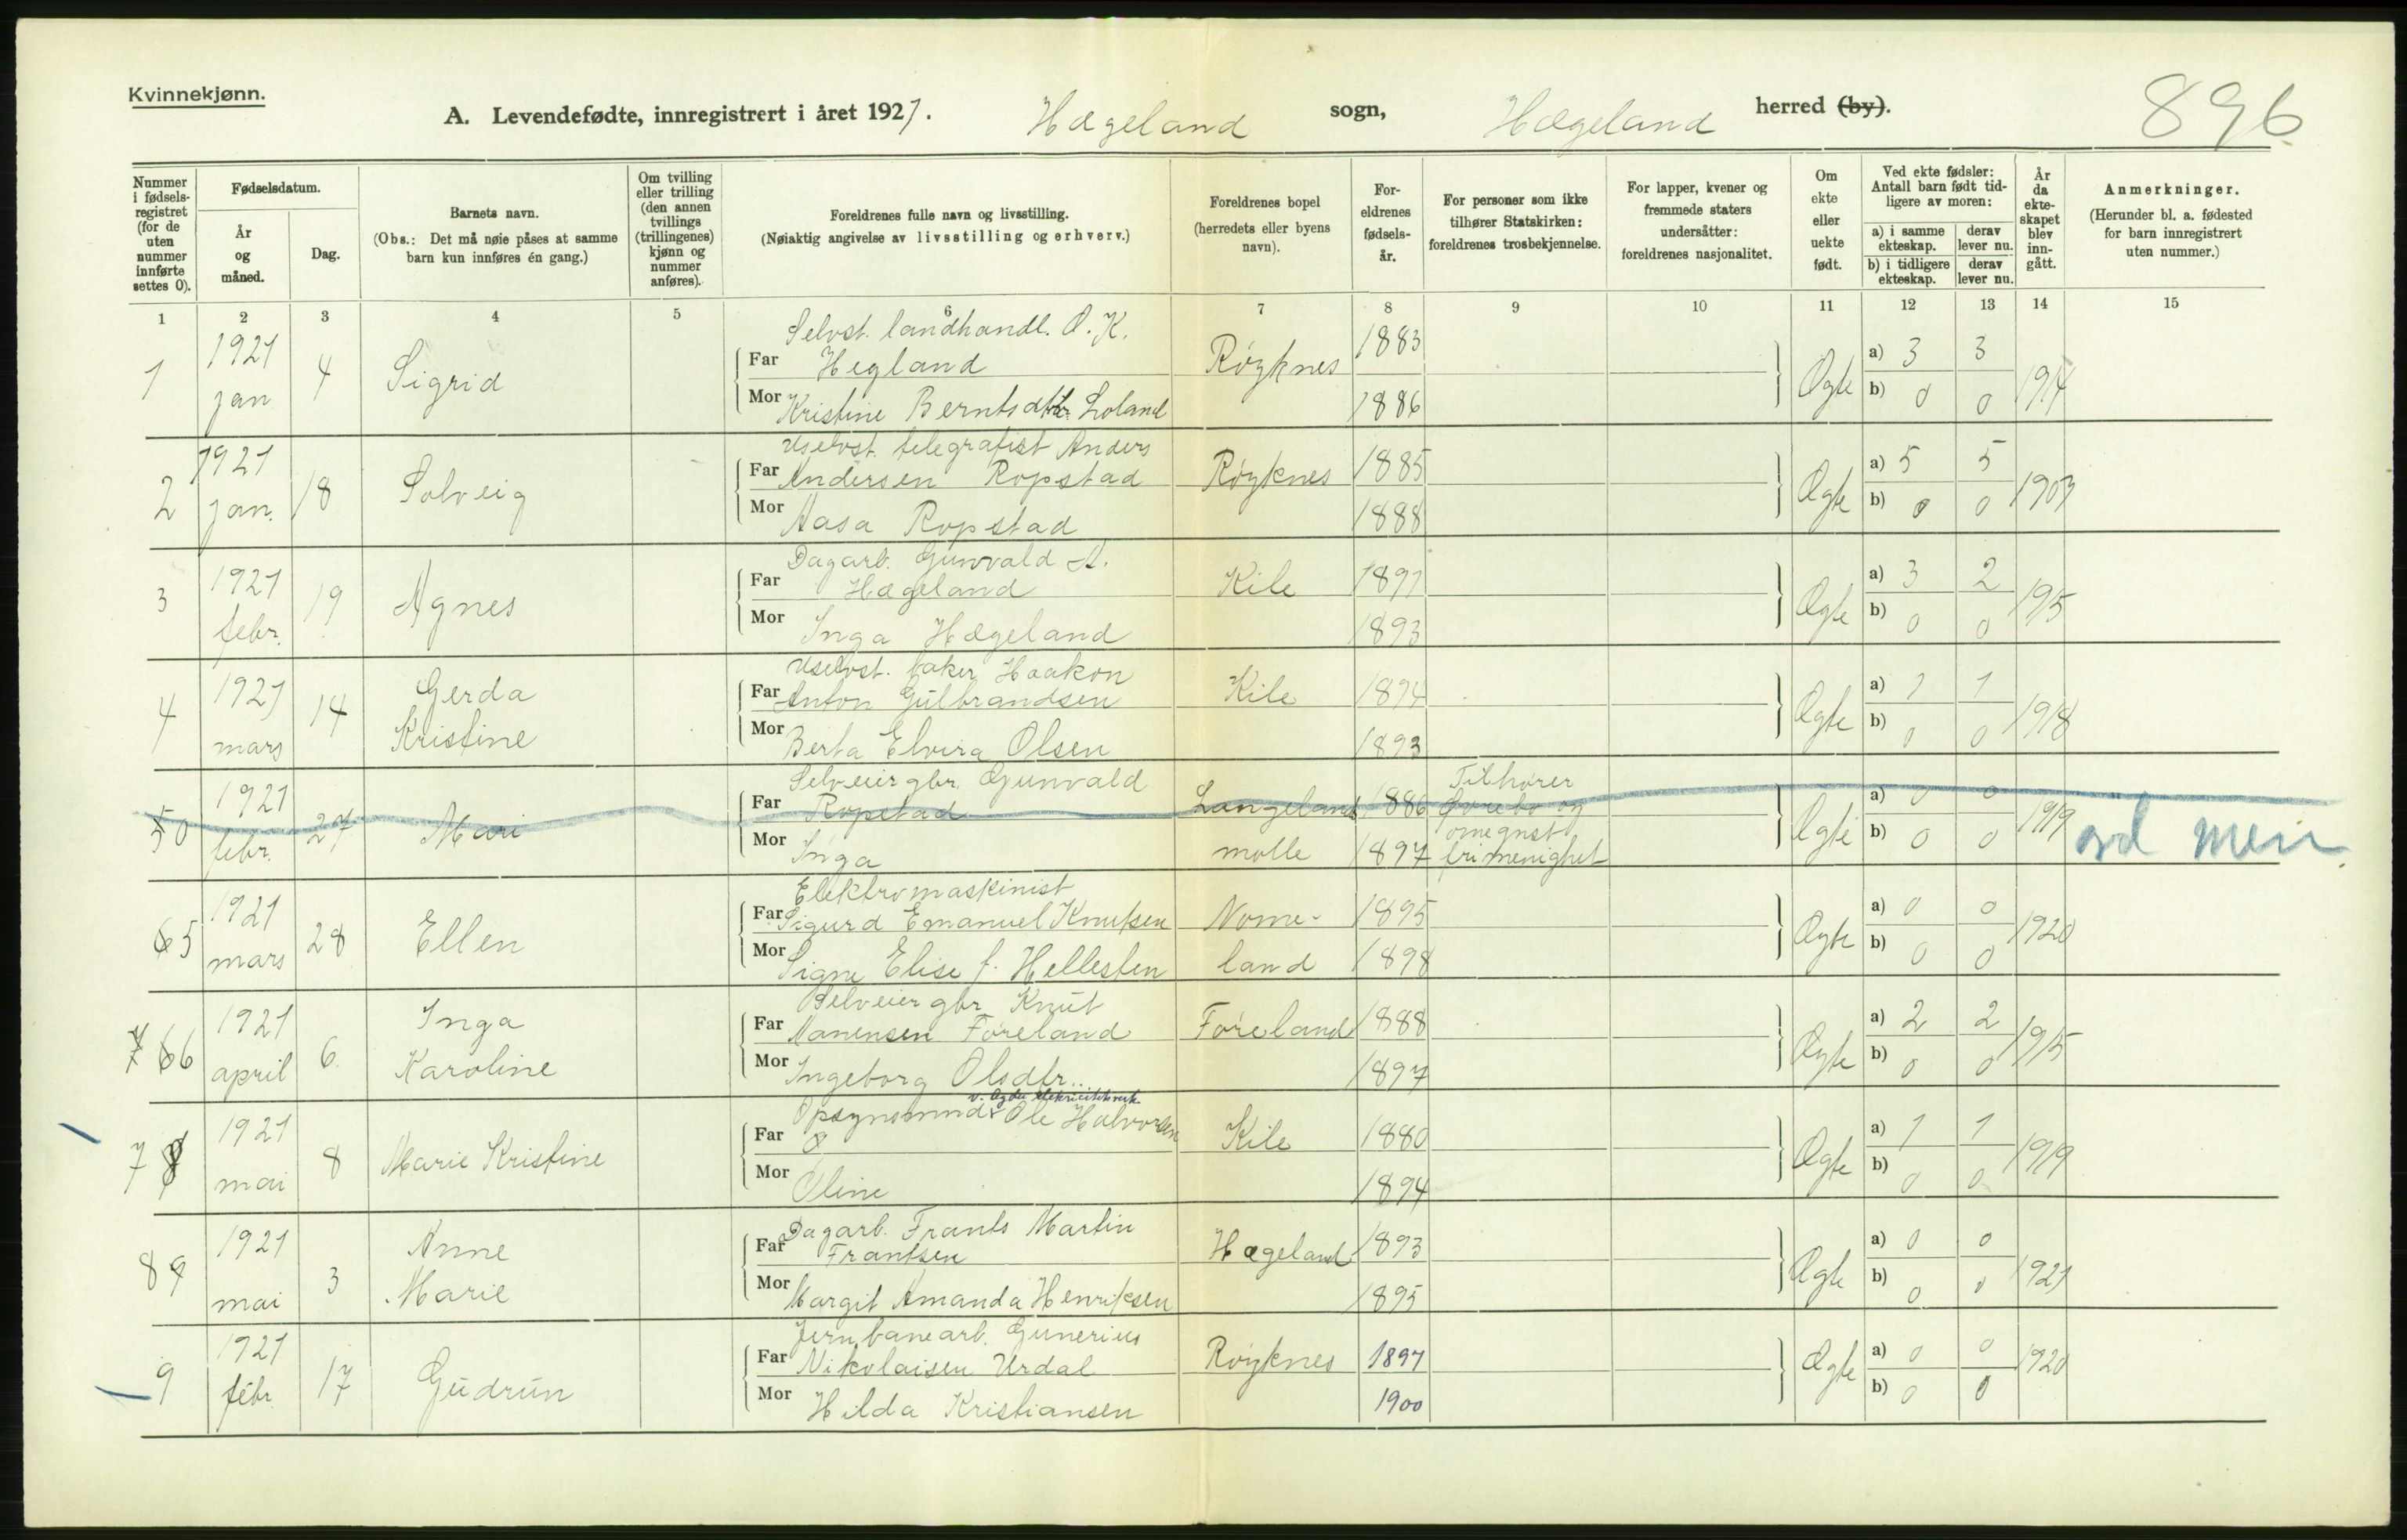 Kvinnekjønn.
A. Levendefødte, innregistrert i året 1921. Hægeland sogn, Hægeland herred (by).
896
Nummer i fødsels-registret (for de uten nummer innførte settes 0).
Fødselsdatum.
År og måned.
Dag.
Barnets navn.
(Obs.: Det må nøie påses at samme barn kun innføres én gang.)
Om tvilling eller trilling (den annen tvillings (trillingenes) kjønn og nummer anføres).
Foreldrenes fulle navn og livsstilling.
(Nøiaktig angivelse av livsstilling og erhverv.)
Foreldrenes bopel (herredets eller byens navn).
For-eldrenes fødsels-år.
For personer som ikke tilhører Statskirken: foreldrenes trosbekjennelse.
For lapper, kvener og fremmede staters undersåtter: foreldrenes nasjonalitet.
Om ekte eller uekte født.
Ved ekte fødsler: Antall barn født tid-ligere av moren:
a) i samme ekteskap. derav lever nu.
b) i tidligere ekteskap. derav lever nu.
År da ekte-skapet blev inn-gått.
Anmerkninger.
(Herunder bl. a. fødested for barn innregistrert uten nummer.)
1 2 3 4 5 6 7 8 9 10 11 12 13 14 15
Selvst. landhandl. O. K.
1 1921 jan 4 Sigrid Far Hegland Røyknes 1883 Ægte a) 3 3 1914
Mor Kristine Berntsdtr. Loland 1886 b) 0 0
Uselvst. telegrafist Anders
2 1921 jan. 18 Solveig Far Andersen Ropstad Røyknes 1885 Ægte a) 5 5 1907
Mor Aasa Ropstad 1888 b) 0 0
Dagarb. Gunvald A.
3 1921 febr. 19 Agnes Far Hægeland Kile 1891 Ægte a) 3 2 1915
Mor Inga Hægeland 1893 b) 0 0
Uselvst. baker Haakon
4 1921 mars 14 Gerda Kristine Far Anton Gulbrandsen Kile 1894 Ægte a) 1 1 1918
Mor Berta Elvira Olsen 1893 b) 0 0
Selveiergbr. Gunvald
5 0 1921 febr. 27 Mari Far Ropstad Langeland 1886 Tilhører Øvrebø og Ægte a) 0 0 1919
Mor Inga molle 1897 omegnst frimenighet b) 0 0
Elektromaskinist
6 5 1921 mars 28 Ellen Far Sigurd Emanuel Knutsen Nome- 1895 Ægte a) 0 0 1920
Mor Signe Elise f. Hellesten land 1898 b) 0 0
Selveiergbr. Knut
7 6 6 1921 april 6. Inga Karoline Far Manensen Føreland Føreland 1888 Ægte a) 2 2 1915
Mor Ingeborg Olsdtr. 1897 b) 0 0
v. Agder elektricitetsverk
Opsynsmand Ole Halvorsen
7 8 1921 mai 8 Marie Kristine Far Ø Kile 1880 Ægte a) 1 1 1919
Mor Oline 1894 b) 0 0
Dagarb. Frants Martin
8 9 1921 mai 3 Anne Marie Far Frantsen Hægeland 1893 Ægte a) 0 0 1921
Mor Margit Amanda Henriksen 1895 b) 0 0
Jernbanearb. Gunerius
9 1921 febr. 17 Gudrun Far Nikolaisen Urdal Røyknes 1897 Ægte a) 0 0 1920
Mor Hilda Kristiansen 1900 b) 0 0